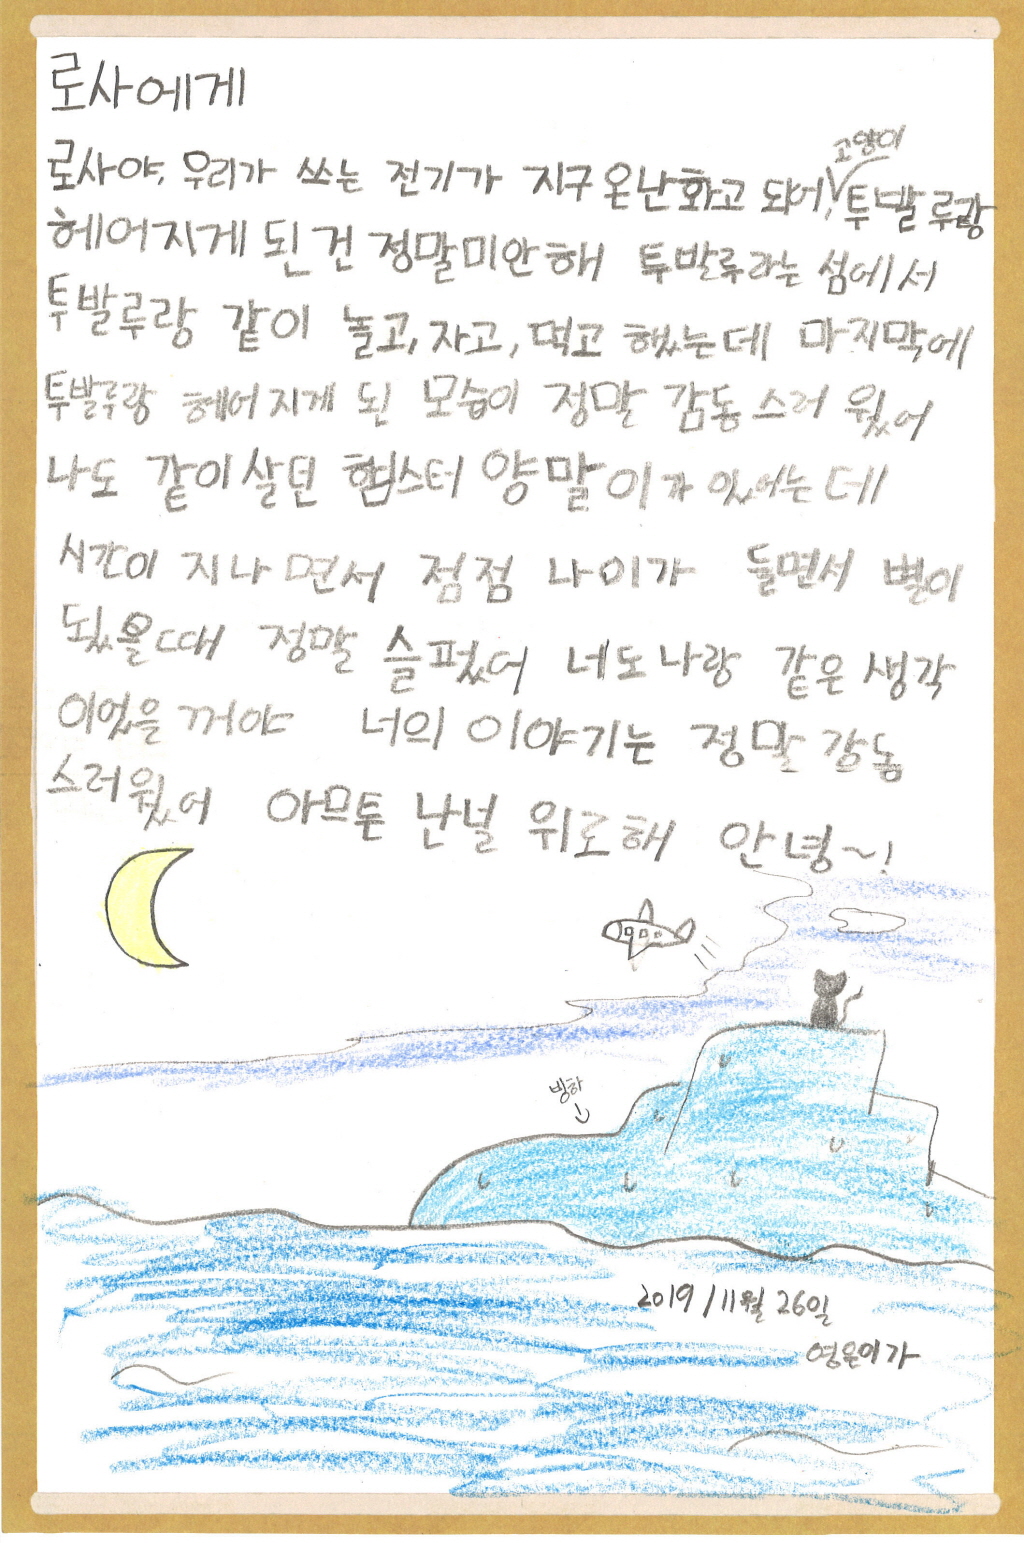 로사에게
로사야, 우리가 쓰는 전기가 지구 온난화고 되어, 고양이 투발루랑
헤어지게 된건 정말미안해 투발루라는 섬에서
투발루랑 같이 놀고, 자고, 먹고 했는데 마지막에
투발루랑 헤어지게 된 모습이 정말 감동스러웠어
나도 같이살던 햄스터 양말이가 있어는데
시간이 지나면서 점점 나이가 들면서 별이
됬을때 정말 슬펐어 너도나랑 같은 생각
이었을꺼야 너의 이야기는 정말 감동
스러웠어 아므튼 난널 위로해 안녕~!
빙하
2019/11월 26일
영운이가